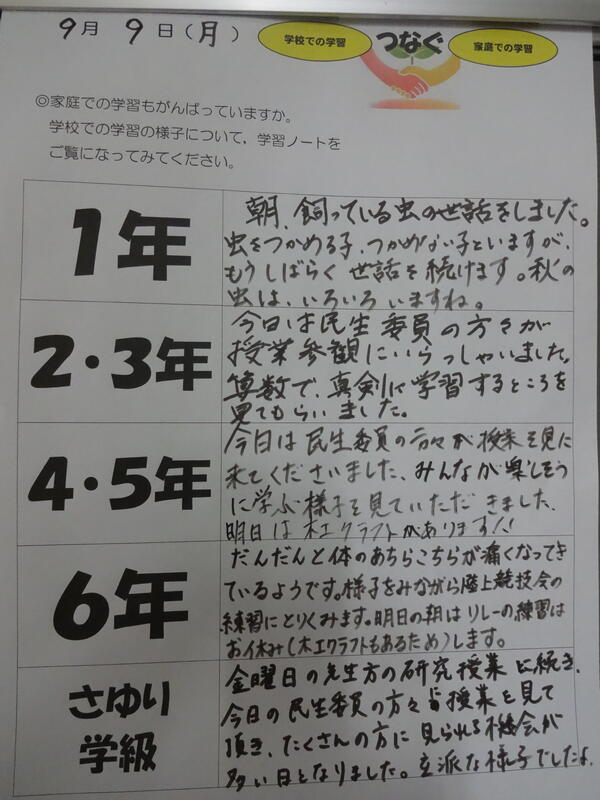 9月 9日(月)
学校での学習
つなぐ
家庭での学習
◎家庭での学習もがんばっていますか。
学校での学習の様子について，学習ノートを
ご覧になってみてください。
1年
朝、飼っている虫の世話をしました。
虫をつかめる子、つかめない子といますが、
もうしばらく世話を続けます。秋の
虫は、いろいろいますね。
2・3年
今日は民生委員の方々が
授業参観にいらっしゃいました。
算数で、真剣に学習するところを
見てもらいました。
4・5年
今日は民生委員の方々が授業を見に
来てくださいました。みんなが楽しそう
に学ぶ様子を見ていただきました。
明日は木工クラフトがあります!!
6年
だんだんと体のあちらこちらが痛くなってき
ているようです。様子をみながら陸上競技会の
練習にとりくみます。明日の朝はリレーの練習は
お休み(木工クラフトもあるため)します。
さゆり
学級
金曜日の先生方の研究授業に続き、
今日の民生委員の方々も授業を見て
頂き、たくさんの方に見られる機会が
多い日となりました。立派な様子でしたよ。